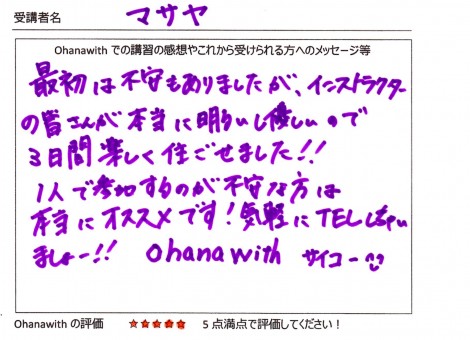 受講者名 マサヤ
Ohanawith での講習の感想やこれから受けられる方へのメッセージ等
最初は不安もありましたが、インストラクター
の皆さんが本当に明るいし優しいので
3日間楽しく住ごせました!!
1人で参加するのが不安な方は
本当にオススメです!気軽にTELしちゃい
ましょー!! Ohanawith サイコー
Ohanawith の評価 ★★★★★ 5点満点で評価してください!